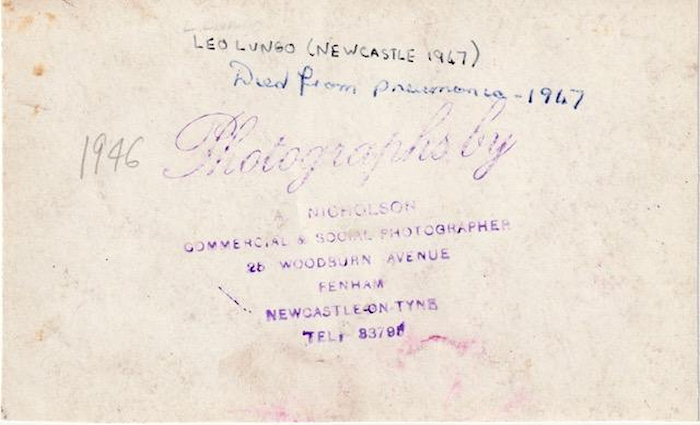 LEO LUNGO (NEWCASTLE 1947)
Died from pneumonia - 1947
1946
Photographs by
A NICHOLSON
COMMERCIAL & SOCIAL PHOTOGRAPHER
26 WOODBURN AVENUE
FENHAM
NEWCASTLE-ON-TYNE
TEL,